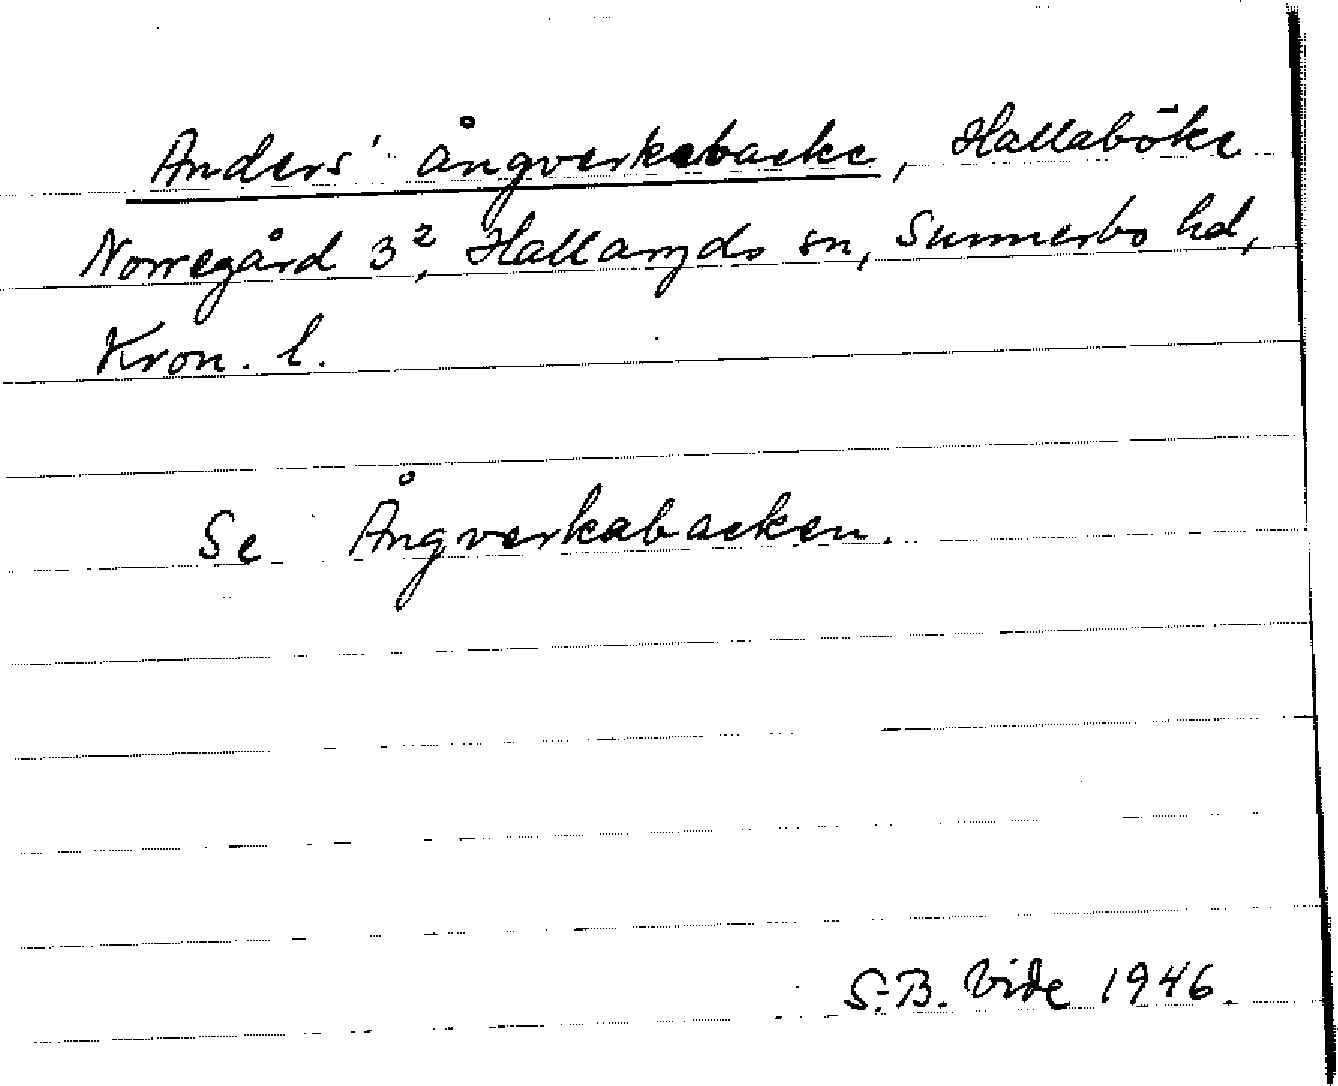 Anders' ångverkebacke, Hallaböke
Norregård 3², Hallaryds sn, Sunnerbo hd,
Kron. l.
Se Ångverkabacken.
S.B. Vide 1946.